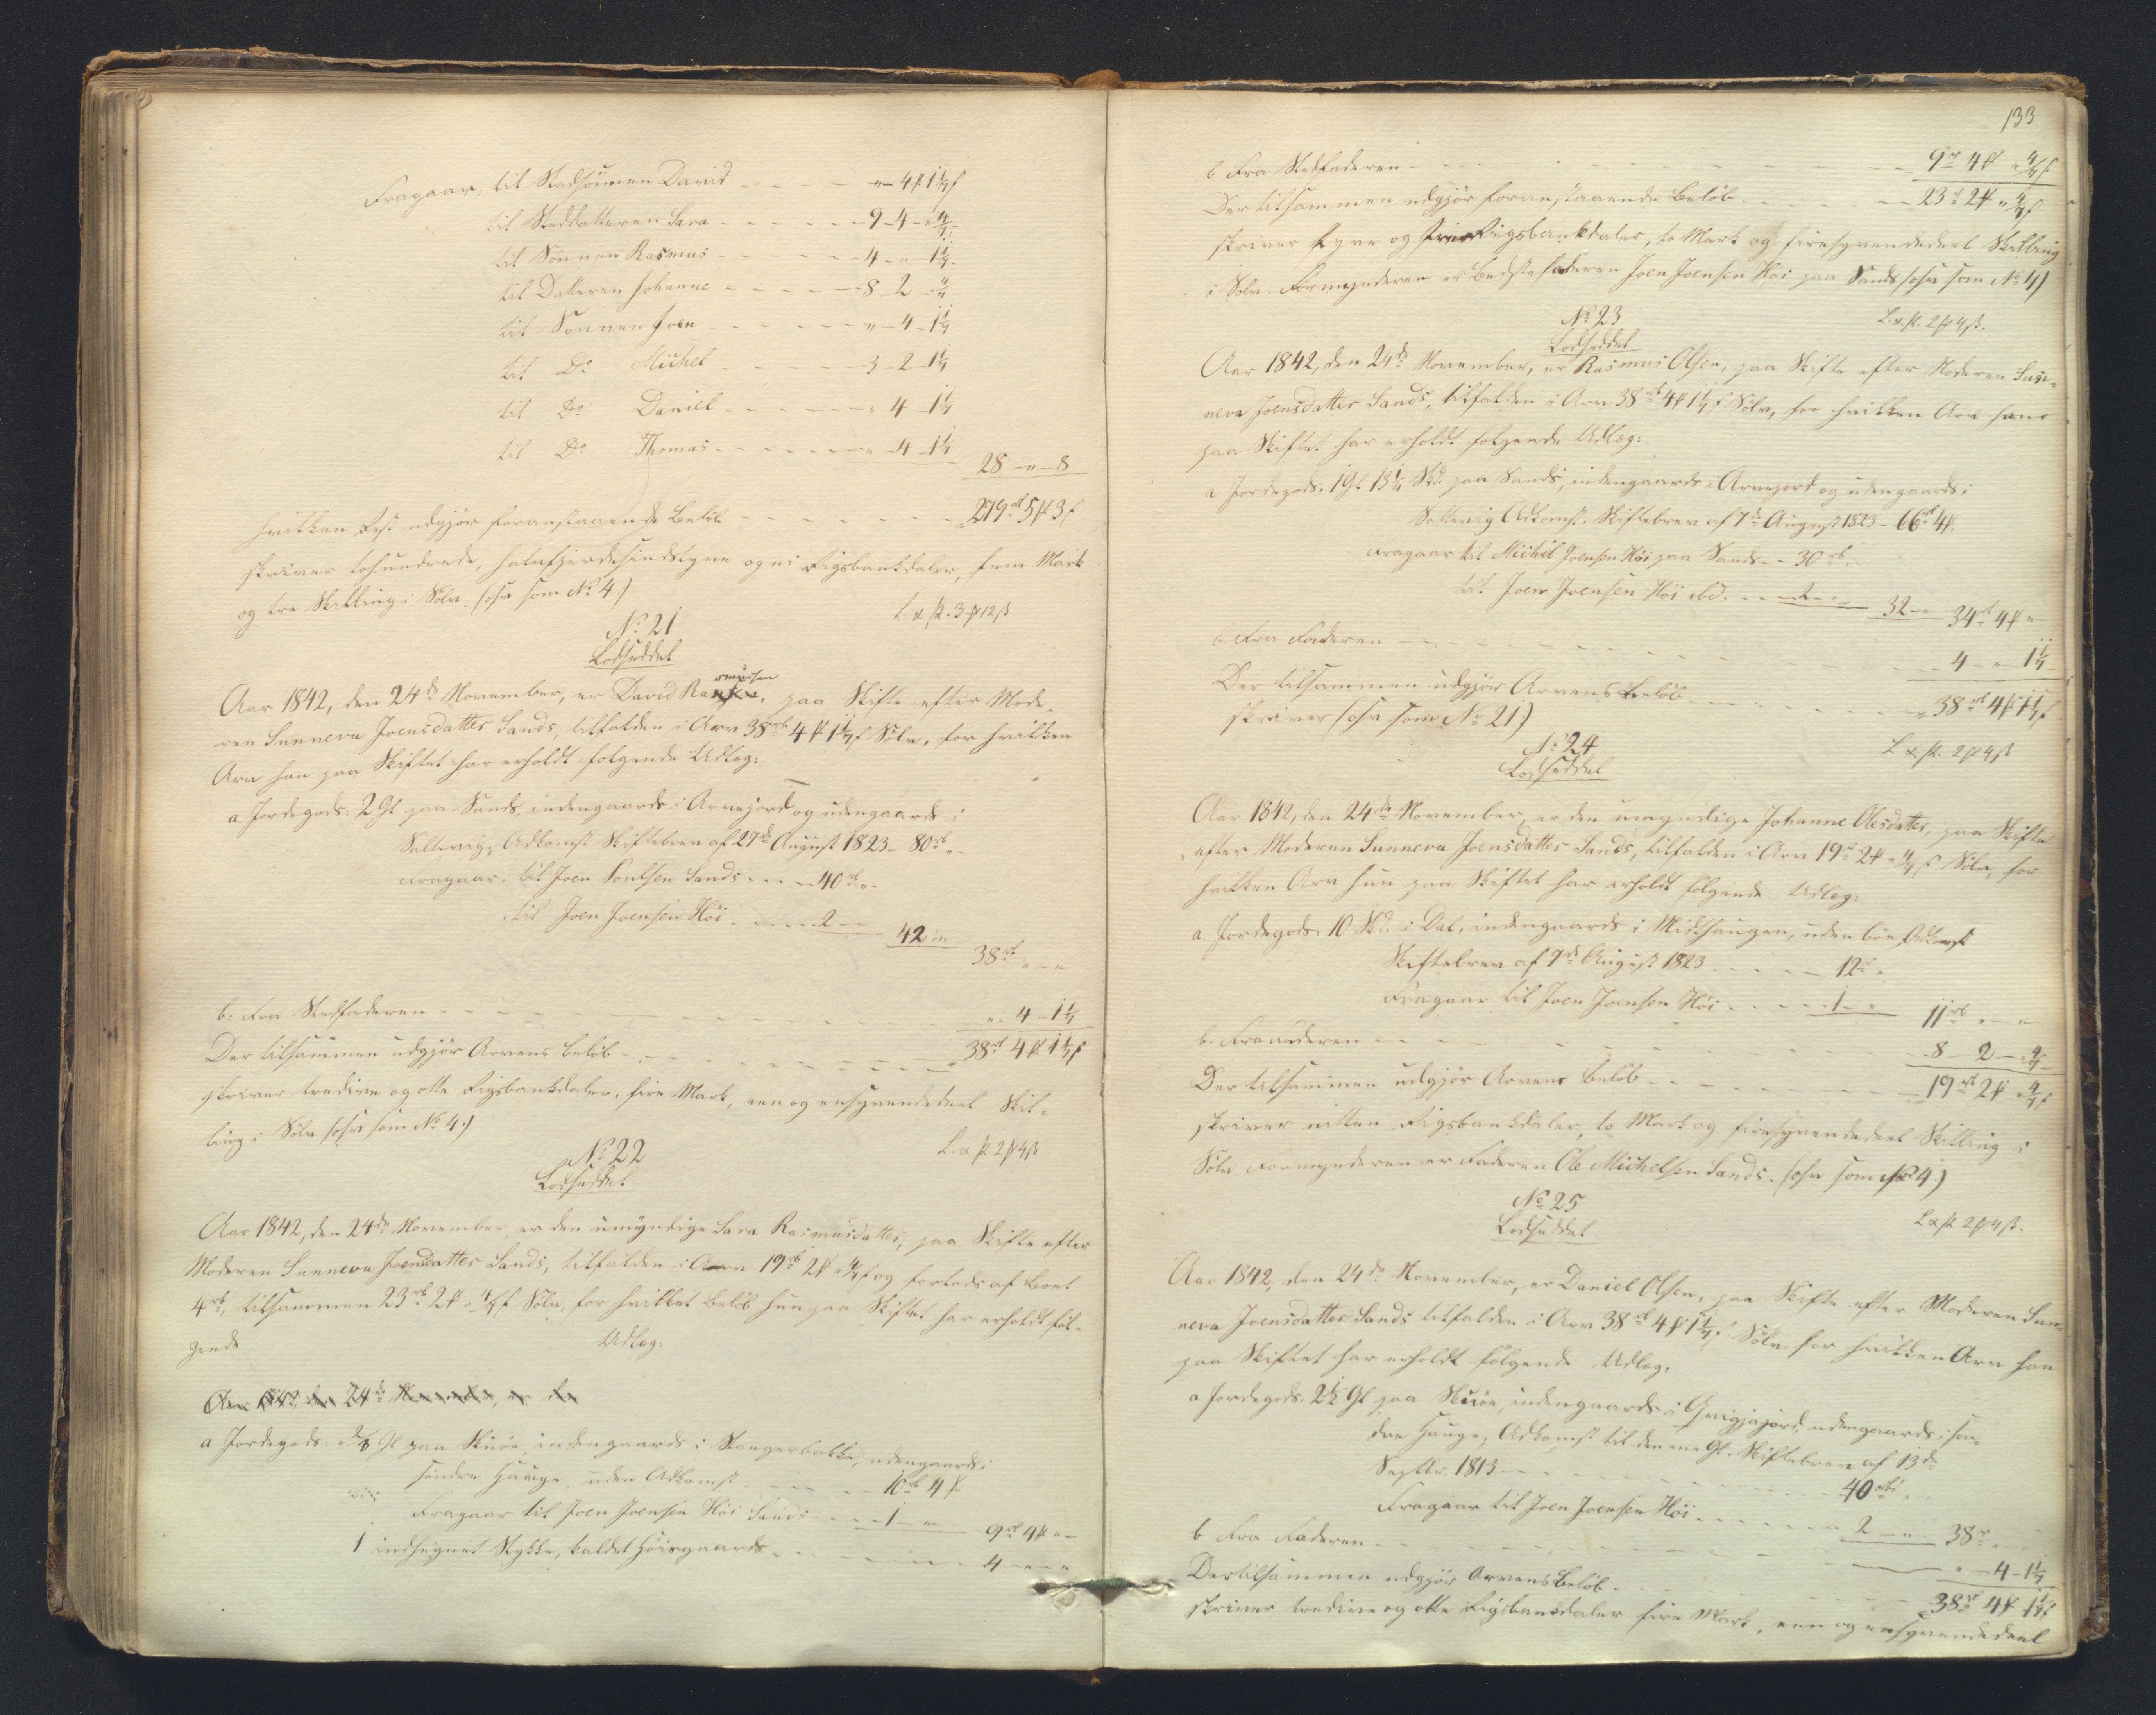 Fragaar: til Stedsönnen David - - - - " - 4 ₰ 1 1/7 ß
til Steddatteren Sara - - - - - 9 - 4 - " 4/7
til Sönnen Rasmus - - - - - 4 - " 1 1/7
til Datteren Johanne - - - - - 8 2 - " 4/7
til Sönnen Joen - - - - - " - 4 - 1 1/7
til Do Michel - - - - - 3 - 2 - 1 1/7
til Do Daniel - - - - - " 4 - 1 1/7
til Do Thomas - - - - - " - 4 - 1 1/7
28 - " - 8
hvilken Rest udgjör foranstaaende Beløb - - - - - 219 rb 5 ₰ 3 ß
skriver tohundrede, halvfjerdesindstyve og ni Rigsbankdaler, fem Mark
og tre Skilling i Sölv. (osv som No 4.)
No 21
L. & p. 3 ₰ 12 ß
Lodseddel
Aar 1842, den 24de November, er David Rasmusen, paa Skifte efter Mode-
ren Sunneva Joensdatter Sands, tilfalden i Arv 38 rb 4 ₰ 1 1/7 ß Sölv, for hvilken
Arv han paa Skiftet har erholdt fölgende Udlæg:
a. Jordegods: 2 Gl. paa Sands, indengaards i Arvejord og udengaards i
Saltevig, Adkomst Skiftebrev af 27de August 1823 - 80 rb " -
Fragaar: til Joen Poulsen Sands - - - - 40 rb " -
til Joen Joensen Höi - - - - 2 - "
42 - "
38 rb " - "
b: Fra Stedfaderen - - - - - " - 4 - 1 1/7
Der tilsammen udgjör Arvens Beløb - - - - - 38 rb 4 ₰ 1 1/7 ß
skriver tredive og otte Rigsbankdaler, fire Mark, een og ensyvendedeel Skil-
ling i Sölv (osv som No 4.)
No 22
L. & p. 2 ₰ 4 ß
Lodseddel
Aar 1842, den 24de November, er den umyndige Sara Rasmusdatter, paa Skifte efter
Moderen Sunneva Joensdatter Sands, tilfalden i Arv 19 rb 2 ₰ " 4/7 ß og forlods af Boet
4 rb, tilsammen 23 rb 2 ₰ " 4/7 ß Sölv, for hvilket Beløb hun paa Skiftet har erholdt föl-
gende Udlæg:
Aar 1842, den 24de November, er den
a Jordegods: Gl paa Skuöe, indengaards i Stangerbakke, udengaards i
söndre Hauge, uden Adkomst - - - - 10 rb 4 ₰
Fragaar til Joen Joensen Höi Sands - - - 1 - "
9 rb 4 ₰ " -
1 indhegnet Stykke, kaldet Höiegaard - - - - 4 - " - "
133
b Fra Stedfaderen - - - - - 9 rb 4 ₰ " 4/7 ß
Der tilsammen udgjör foranstaaende Beløb - - - - - 23 rb 2 ₰ " 4/7 ß
skriver tyve og tre Rigsbankdaler, to Mark og firesyvendedeel Skilling
i Sölv. Formynderen er Bedstefaderen Joen Joensen Höi paa Sands (osv som No 4)
No 23
L. & p. 2 ₰ 4 ß.
Lodseddel
Aar 1842, den 24de November, er Rasmus Olsen, paa Skifte efter Moderen Sun-
neva Joensdatter Sands, tilfalden i Arv 38 rb 4 ₰ 1 1/7 ß Sölv, for hvilken Arv han
paa Skiftet har erholdt fölgende Udlæg:
a Jordegods: 1 Gl. 13 1/4 Skd. paa Sands, indengaards i Arvejord og udengaards i
Saltevig Adkomst. Skiftebrev af 7de August 1823 - 66 rb 4 ₰.
Fragaar til Michel Joensen Höi paa Sands - - 30 rb
til Joen Joensen Höi ibd. - - - 2 - "
32 - " 34 rb 4 ₰ " -
b. Fra Faderen - - - - - 4 - " 1 1/7
Der tilsammen udgjör Arvens Beløb - - - - - 38 rb 4 ₰ 1 1/7 ß
skriver (osv som No 21)
No 24
L & p. 2 ₰ 4 ß
Lodseddel
Aar 1842, den 24de November, er den umyndige Johanne Olesdatter, paa Skifte
efter Moderen Sunneva Joensdatter Sands, tilfalden i Arv 19 rb 2 ₰ " 4/7 ß Sölv, for
hvilken Arv hun paa Skiftet har erholdt fölgende Udlæg:
a. Jordegods: 10 Skd. i Dal, indengaards i Midthaugen, uden böes, Adkomst
Skiftebrev af 7de August 1823 - - - - 12 rb "
Fragaar til Joen Joensen Höi - - - - 1 - "
11 rb " - "
b. Fra Faderen - - - - - 8 - 2 - " 4/7
Der tilsammen udgjör Arvens Beløb - - - - - 19 rb 2 ₰ " 4/7 ß
skriver nitten Rigsbankdaler, to Mark og firesyvendedeel Skilling i
Sölv Formynderen er Faderen Ole Michelsen Sands. (osv som No 4.)
No 25
L & p. 2 ₰ 4 ß.
Lodseddel
Aar 1842, den 24de November, er Daniel Olsen, paa Skifte efter Moderen Sun-
neva Joensdatter Sands tilfalden i Arv 38 rb 4 ₰ 1 1/7 ß Sölv for hvilken Arv han
paa Skiftet har erholdt fölgende Udlæg.
a Jordegods. 2 1/2 Gl paa Skuöe, indengaards i Grigjajord, udengaards i sön-
dre Hauge, Adkomst til den ene Gl. Skiftebrev af 13de
Septbr. 1813 - - - - - 40 rb " -
Fragaar til Joen Joensen Höi - - - - 2 - " - 38 rb " -
b Fra Faderen - - - - - " - 4 - 1 1/7
Der tilsammen udgjör Arvens Beløb - - - - - 38 rb 4 ₰ 1 1/7 ß
skriver tredive og otte Rigsbankdaler fire Mark, een og ensyvendedeel